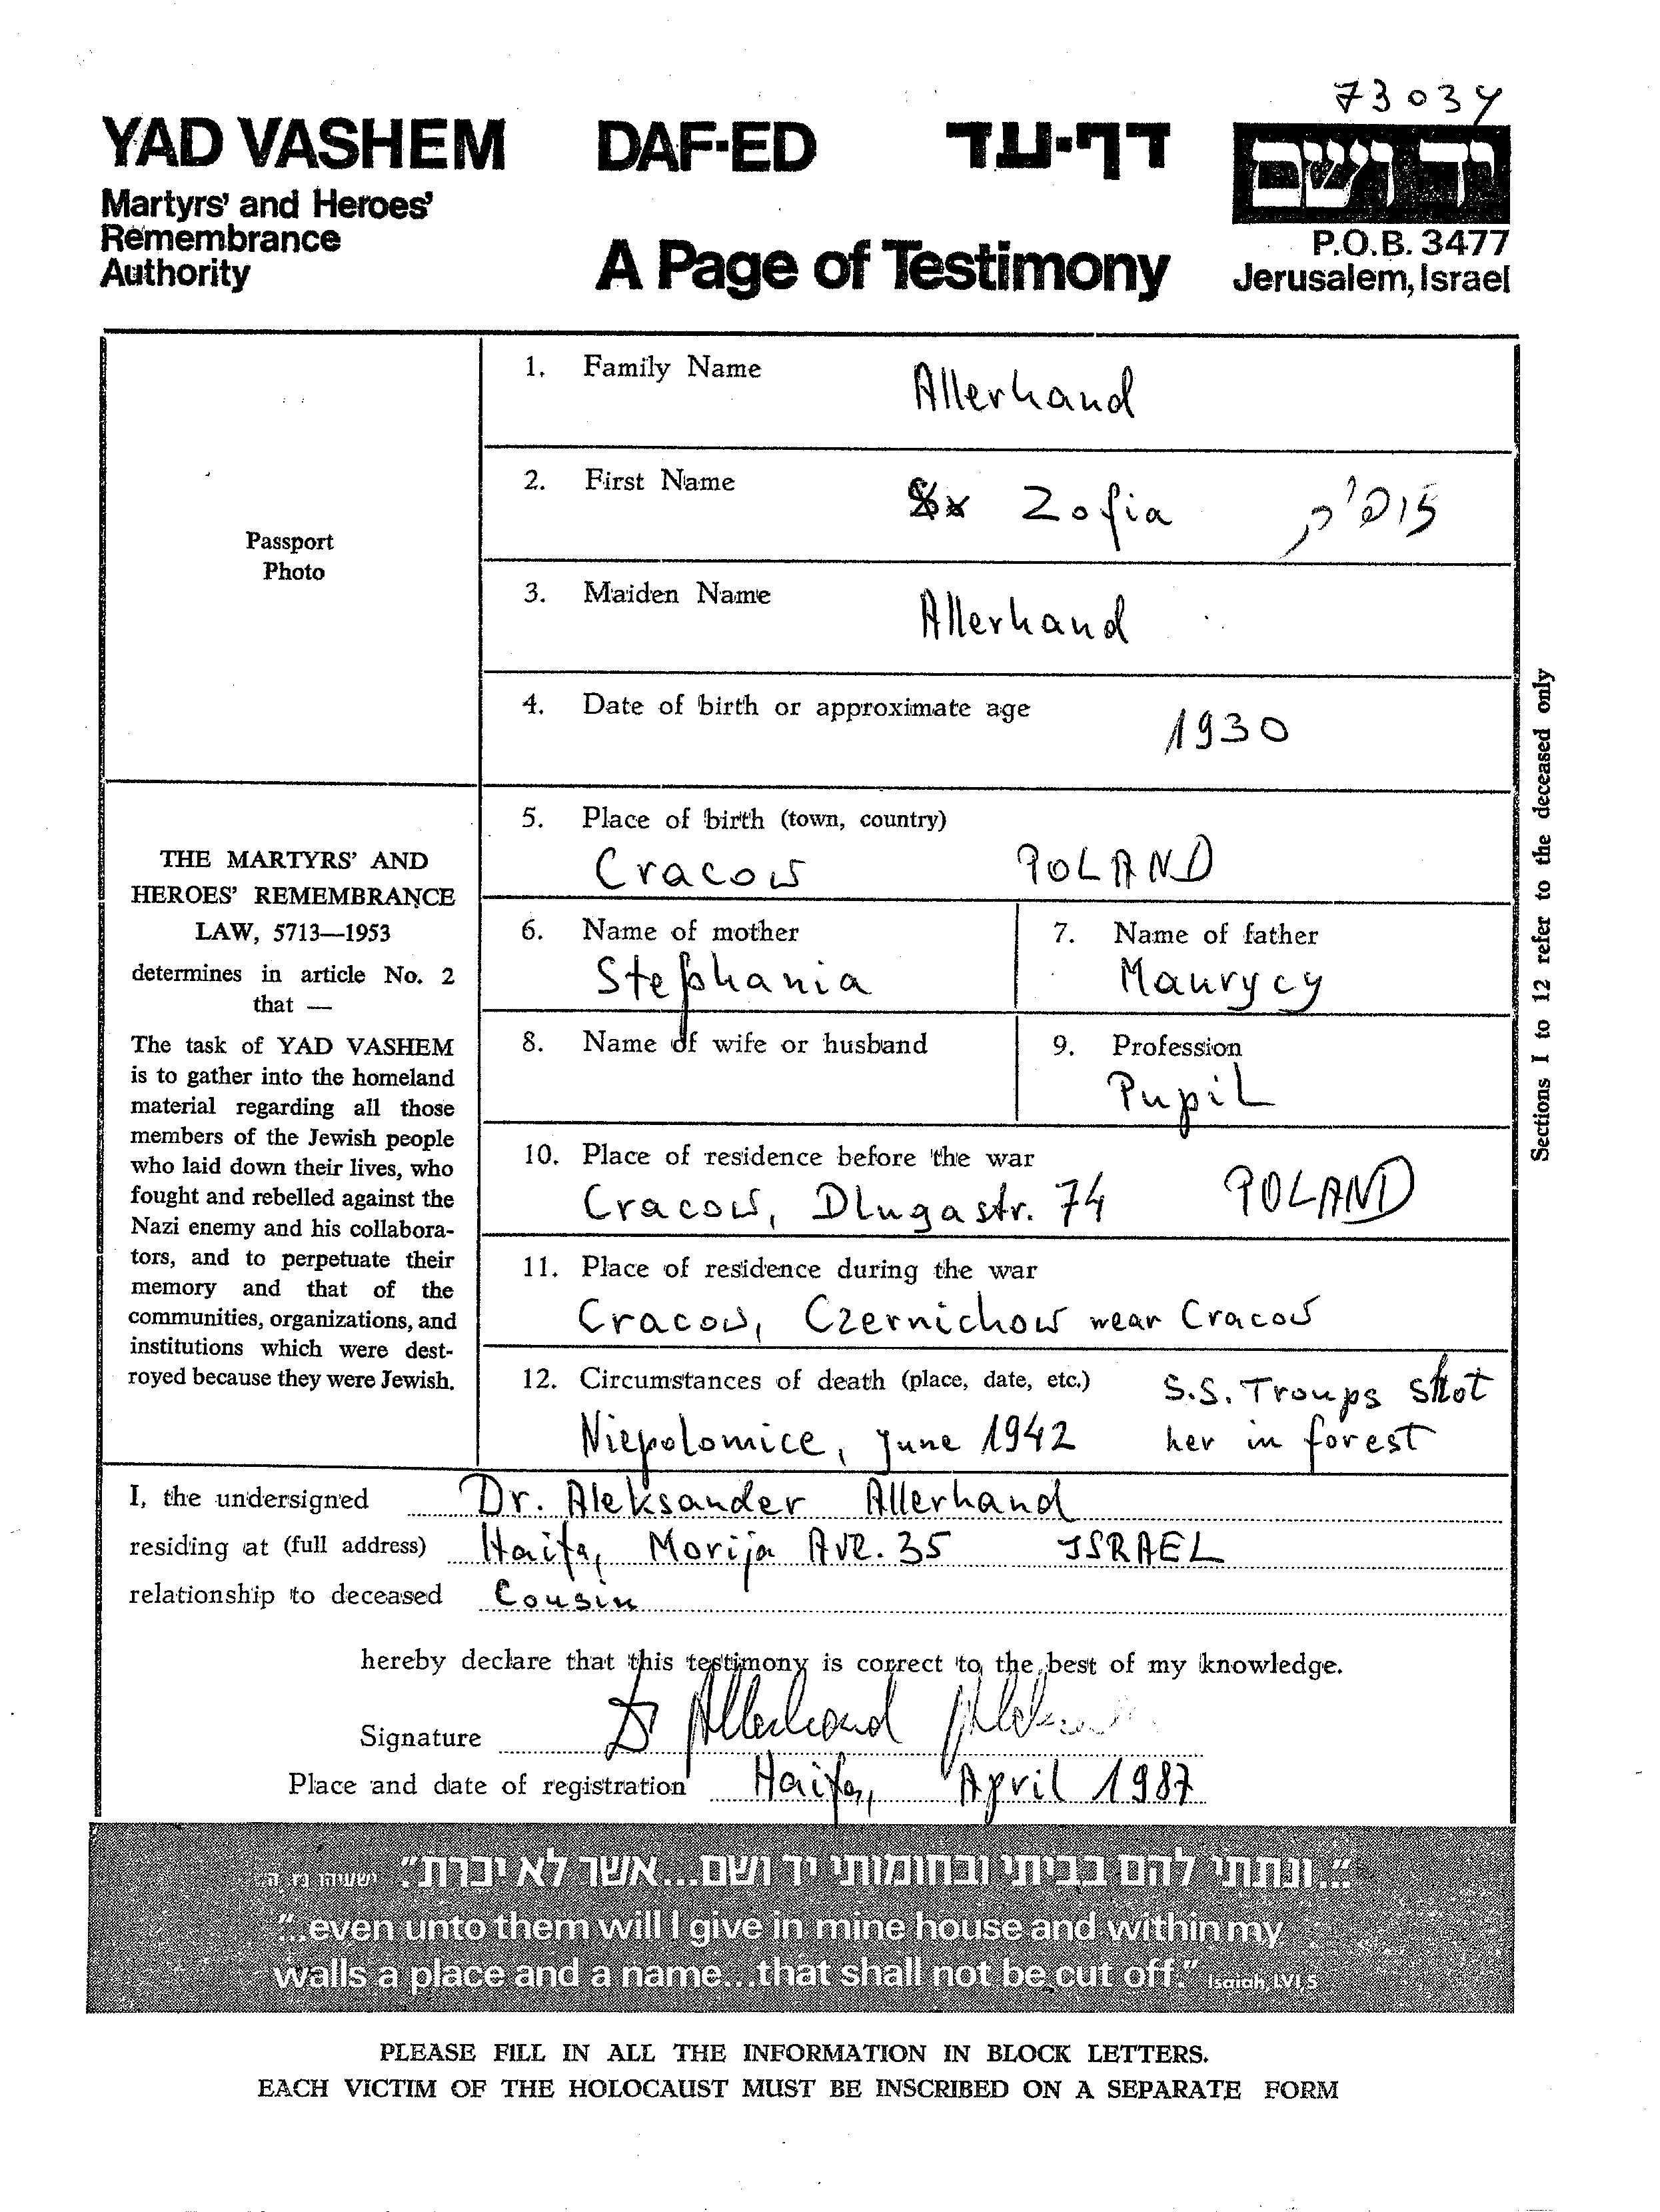 73034
YAD VASHEM
Martyrs' and Heroes'
Remembrance
Authority
DAF-ED דף-עד
A Page of Testimony
יד ושם
P.O.B. 3477
Jerusalem, Israel
Passport
Photo
1. Family Name
Allerhand
2. First Name
Zofia
3. Maiden Name
Allerhand
4. Date of birth or approximate age
1930
5. Place of birth (town, country)
Cracow POLAND
6. Name of mother
Stephania
7. Name of father
Maurycy
8. Name of wife or husband
9. Profession
Pupil
10. Place of residence before the war
Cracow, Dlugastr. 74 POLAND
11. Place of residence during the war
Cracow, Czernichow near Cracow
12. Circumstances of death (place, date, etc.) S.S. Troups shot
Niepolomice, June 1942 her in forest
Sections 1 to 12 refer to the deceased only
THE MARTYRS' AND
HEROES' REMEMBRANCE
LAW, 5713—1953
determines in article No. 2
that —
The task of YAD VASHEM
is to gather into the homeland
material regarding all those
members of the Jewish people
who laid down their lives, who
fought and rebelled against the
Nazi enemy and his collabora-
tors, and to perpetuate their
memory and that of the
communities, organizations, and
institutions which were dest-
royed because they were Jewish.
I, the undersigned Dr. Aleksander Allerhand
residing at (full address) Haifa, Morija Ave. 35 ISRAEL
relationship to deceased Cousin
hereby declare that this testimony is correct to the best of my knowledge.
Signature Dr Allerhand
Place and date of registration Haifa, April 1987
"...ונתתי להם בביתי ובחומותי יד ושם...אשר לא יכרת." ישעיהו נו, ה
"...even unto them will I give in mine house and within my
walls a place and a name...that shall not be cut off." Isaiah, LVI, 5
PLEASE FILL IN ALL THE INFORMATION IN BLOCK LETTERS.
EACH VICTIM OF THE HOLOCAUST MUST BE INSCRIBED ON A SEPARATE FORM